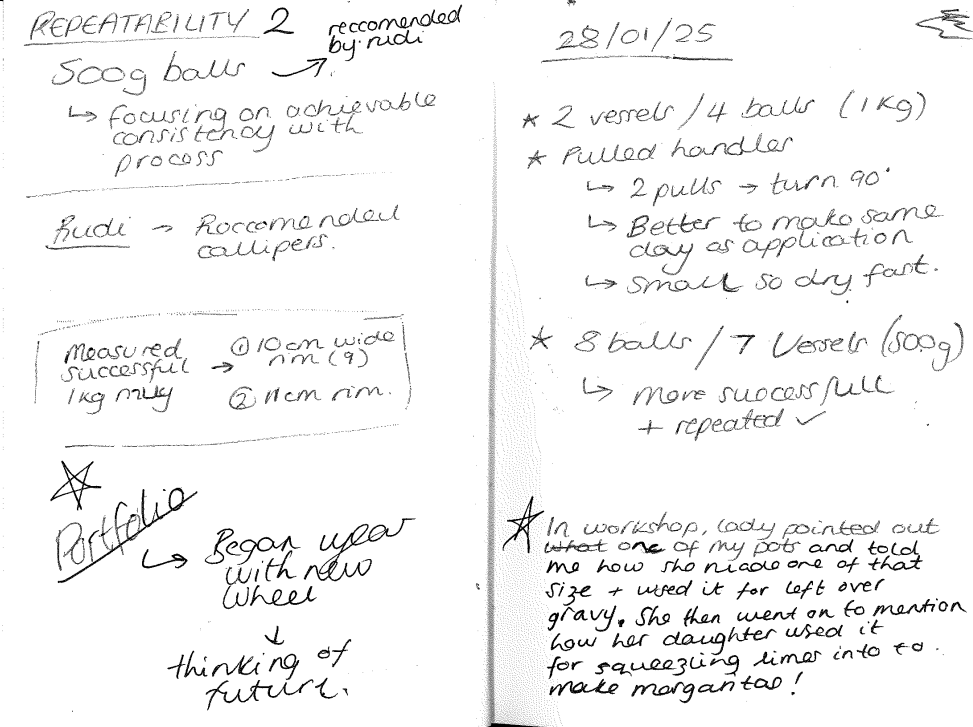 REPEATABILITY 2
reccomended
by: rudi
500g balls →
↳ focusing on achievable
consistency with
process
Rudi → Roccomended
callipers.
Measured
successful →
1kg mug
① 10cm wide
rim (9)
② 11cm rim.
☆
Portfolio
↳ Began year
with new
wheel
↓
thinking of
future.
28/01/25
* 2 vessels / 4 balls (1Kg)
* Pulled handles
↳ 2 pulls → turn 90°
↳ Better to make same
day as application
↳ Small so dry fast.
* 8 balls / 7 Vessels (500g)
↳ more successfull
+ repeated ✓
☆ In workshop, lady pointed out
what one of my pots and told
me how she made one of that
size + used it for left over
gravy. She then went on to mention
how her daughter used it
for squeezling limes into to
make margaritas!